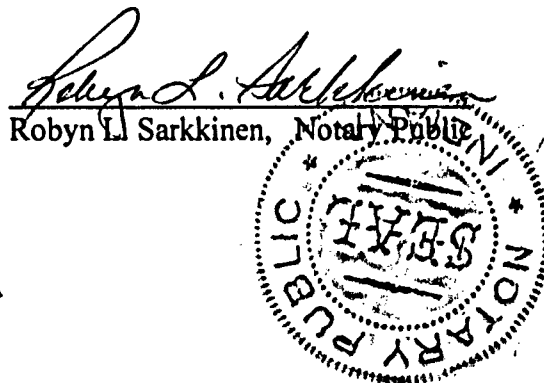 Robyn L. Sarkkinen
Robyn L. Sarkkinen, Notary Public
NOTARY PUBLIC
SEAL